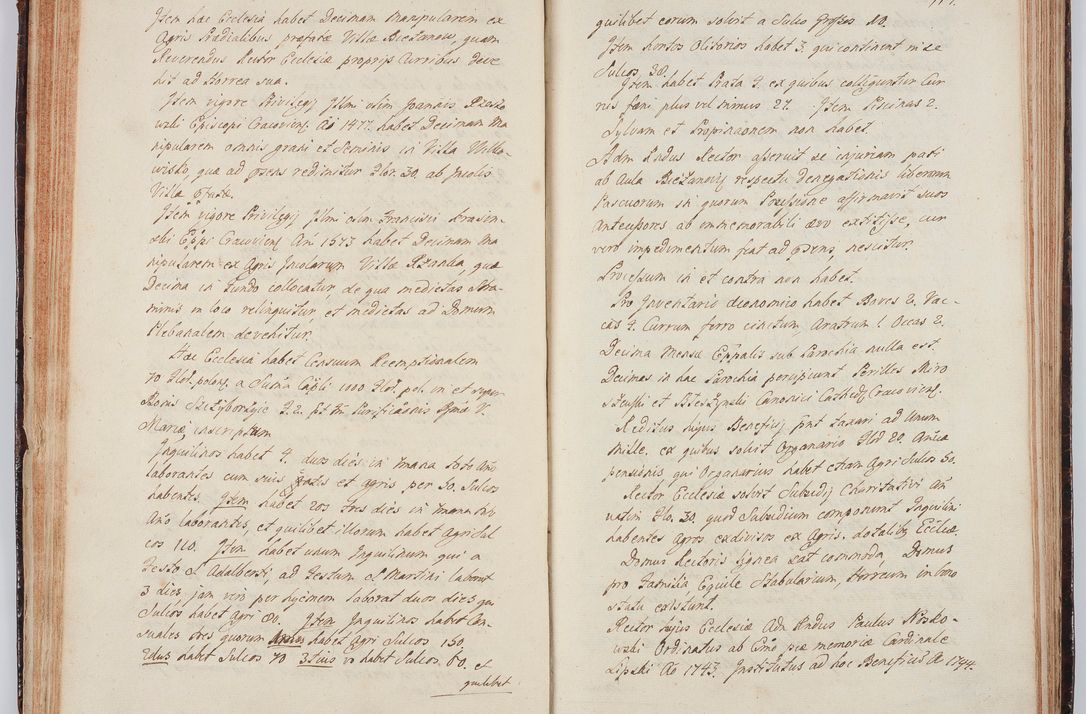 Item hæc Ecclesia habet Decimam Manipularem ex
Agris Prædialibus præfatæ Villæ Bieżanow, quam
Reverendus Rector Ecclesiæ proprijs Curribus deve
hit ad Horrea sua.
Item vigore Privilegij Illmi olim Joannis Rzeszo
wski Episcopi Cracovienś Ao 1477. habet Decimam Ma
nipularem omnis grani et seminis in Villa
quæ ad præsens redimitur Flor. 30. ab Incolis
Villæ
Item vigore Privilegij Illmi olim Francisci Krasin-
ski Eppi Cracovienś An 1573 habet Decimam Ma
nipularem ex Agris Incolarum Villæ Rżanka, quæ
Decima in fundo collocatur, de qua medietas Stra-
minis in loco relinquitur, et medietas ad Domum
Plebanalem devehitur.
Hæc Ecclesia habet Censum Reemptionalem
70 Flor. polonś. a Suma Capli 1000 Flor. pol. in et super
Bonis
Mariæ inscriptum
Inquilinos habet 4. duos dies in
laborantes cum suis et agris per 50. Sulcos
habentes. Item habet 2os tres dies in
Año laborantes, et quilibet illorum habet Agri Sul
cos 110. Item habet unum Inquilinum qui a
Festo S. Adalberti, ad Festum S. Martini laborat
3 dies, jam vero per hyemem laborat duos dies qui
Sulcos habet Agri 80. Item Inquilinos habet Cen-
suales tres quorum habet Agri Sulcos 150
2dus habet Sulcos 70 3tius vo habet Sulcos 60. et
quilibet
quilibet eorum solvit a Sulco Grosso 10.
Item hortos Olitorios habet 3. qui continent in se
Sulcos 30.
Item habet Prata 9. ex quibus colliguntur Cur
rus fæni plus vel minus 27. Item Piscinas 2.
Sylvam et Propinaonem non habet.
Adm Rndus Rector asseruit se injuriam pati
ab Aula Bieżanoviens respectu denegationis liberorum
Pascuorum in quorum Possessione affirmavit suos
Antecessores ab immemorabili ævo extitisse, cur
vero impedimentum fiat ad præsens, nescitur.
Processum in et contra non habet.
Pro Inventario œconomico habet Boves 2. Vac-
cas 9. Currum ferro cinctum Aratrum 1 Occas 2.
Decima Mensæ Eppalis sub Parochia nulla est.
Decimas in hac Parochia percipiunt Perilles Miro
szewski et Canonici Cathedr. Cracovienś.
Reditus hujus Beneficij sunt taxari ad Unum
Mille, ex quibus solvit Organario Flor 20. Annuæ
pensionis qui Organarius habet etiam Agri Sulcos 50.
Rector Ecclesiæ solvit Subsidij Charitativi An
natim Flo. 30. quod Subsidium componunt Inquilini
habentes Agros exdivisos ex Agris dotalibq Eccliæ.
Domus Rectoris lignea sat commoda, Domus
pro Familia Equile Stabularium, Horreum in bono
statu existunt.
Rector hujus Ecclesiæ Adm Rndus Paulus Nosko-
wski Ordinatus ab Emo piæ memoriæ Cardinale
Lipski Ao 1743. Institutus ad hoc Beneficiu Ao 1744.